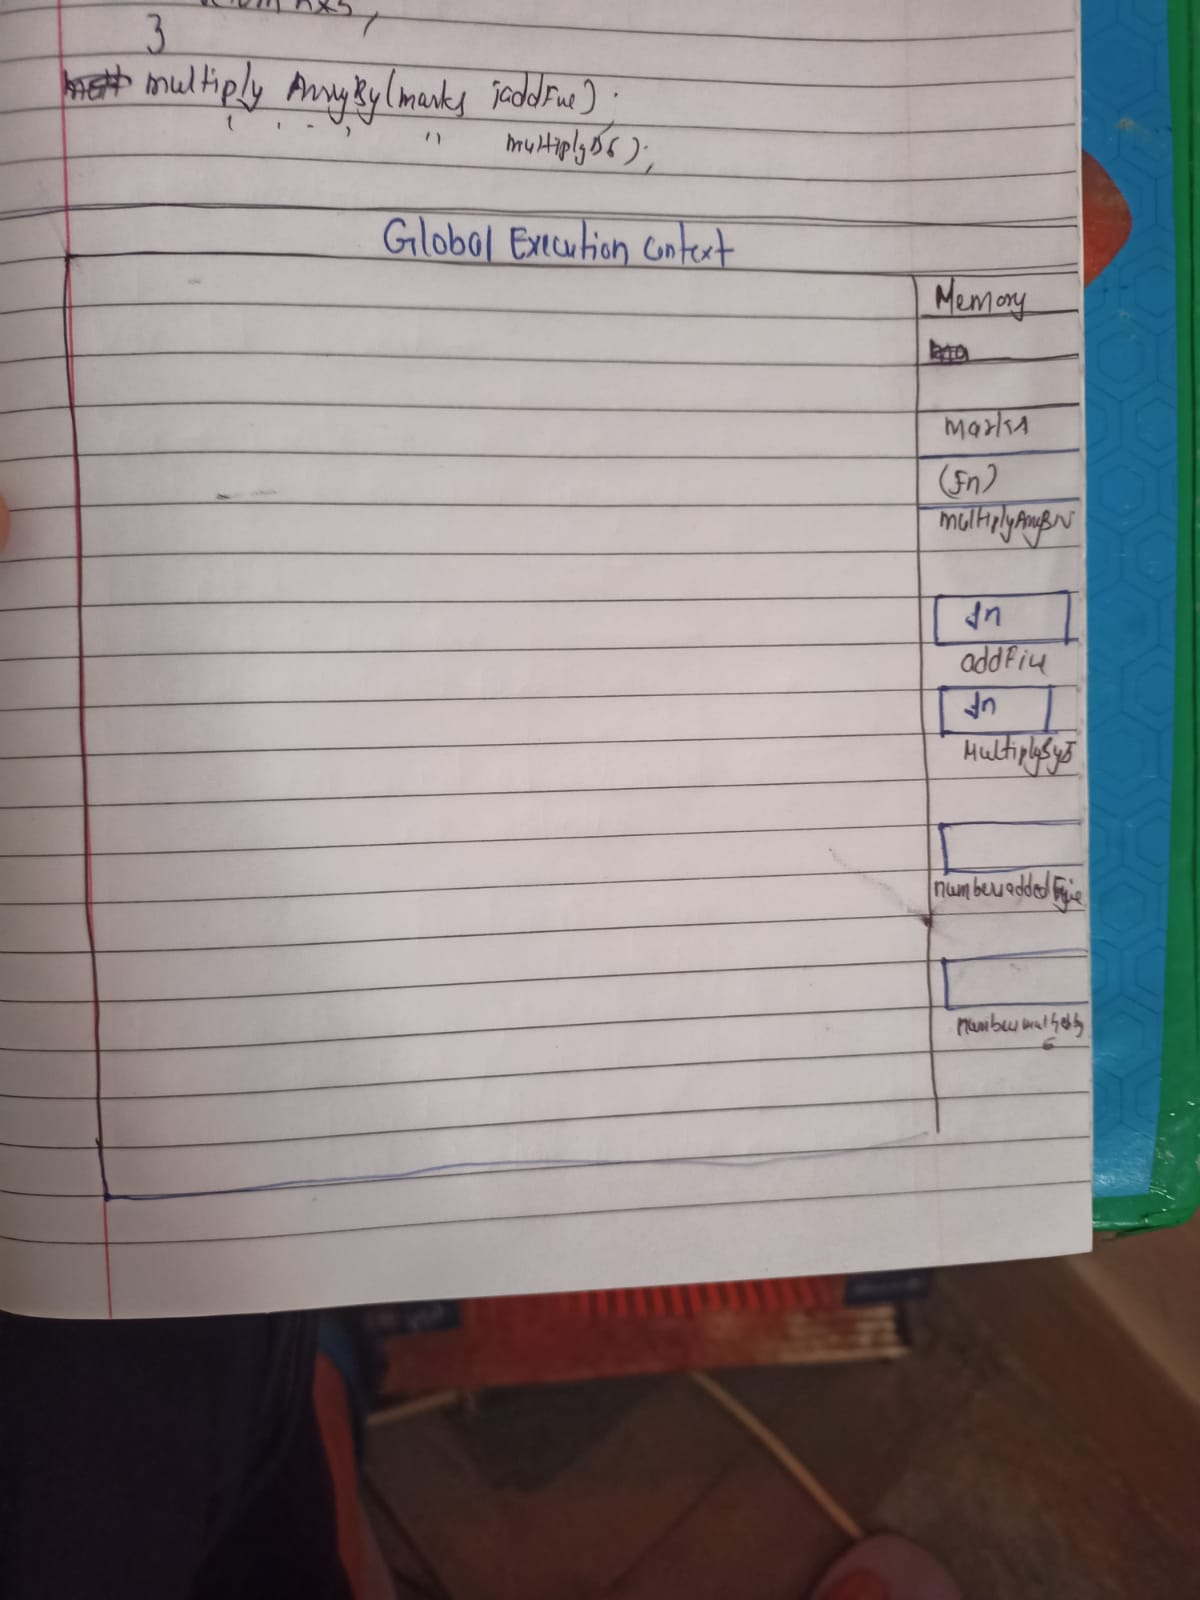 3
multiply ArrayBy(marks ;addFue);
" multiplyB6);
Global Execution Context
Memory
marks
(fn)
multiplyArryBN
fn
addFive
fn
MultiplyBy5
numberadded
number
6